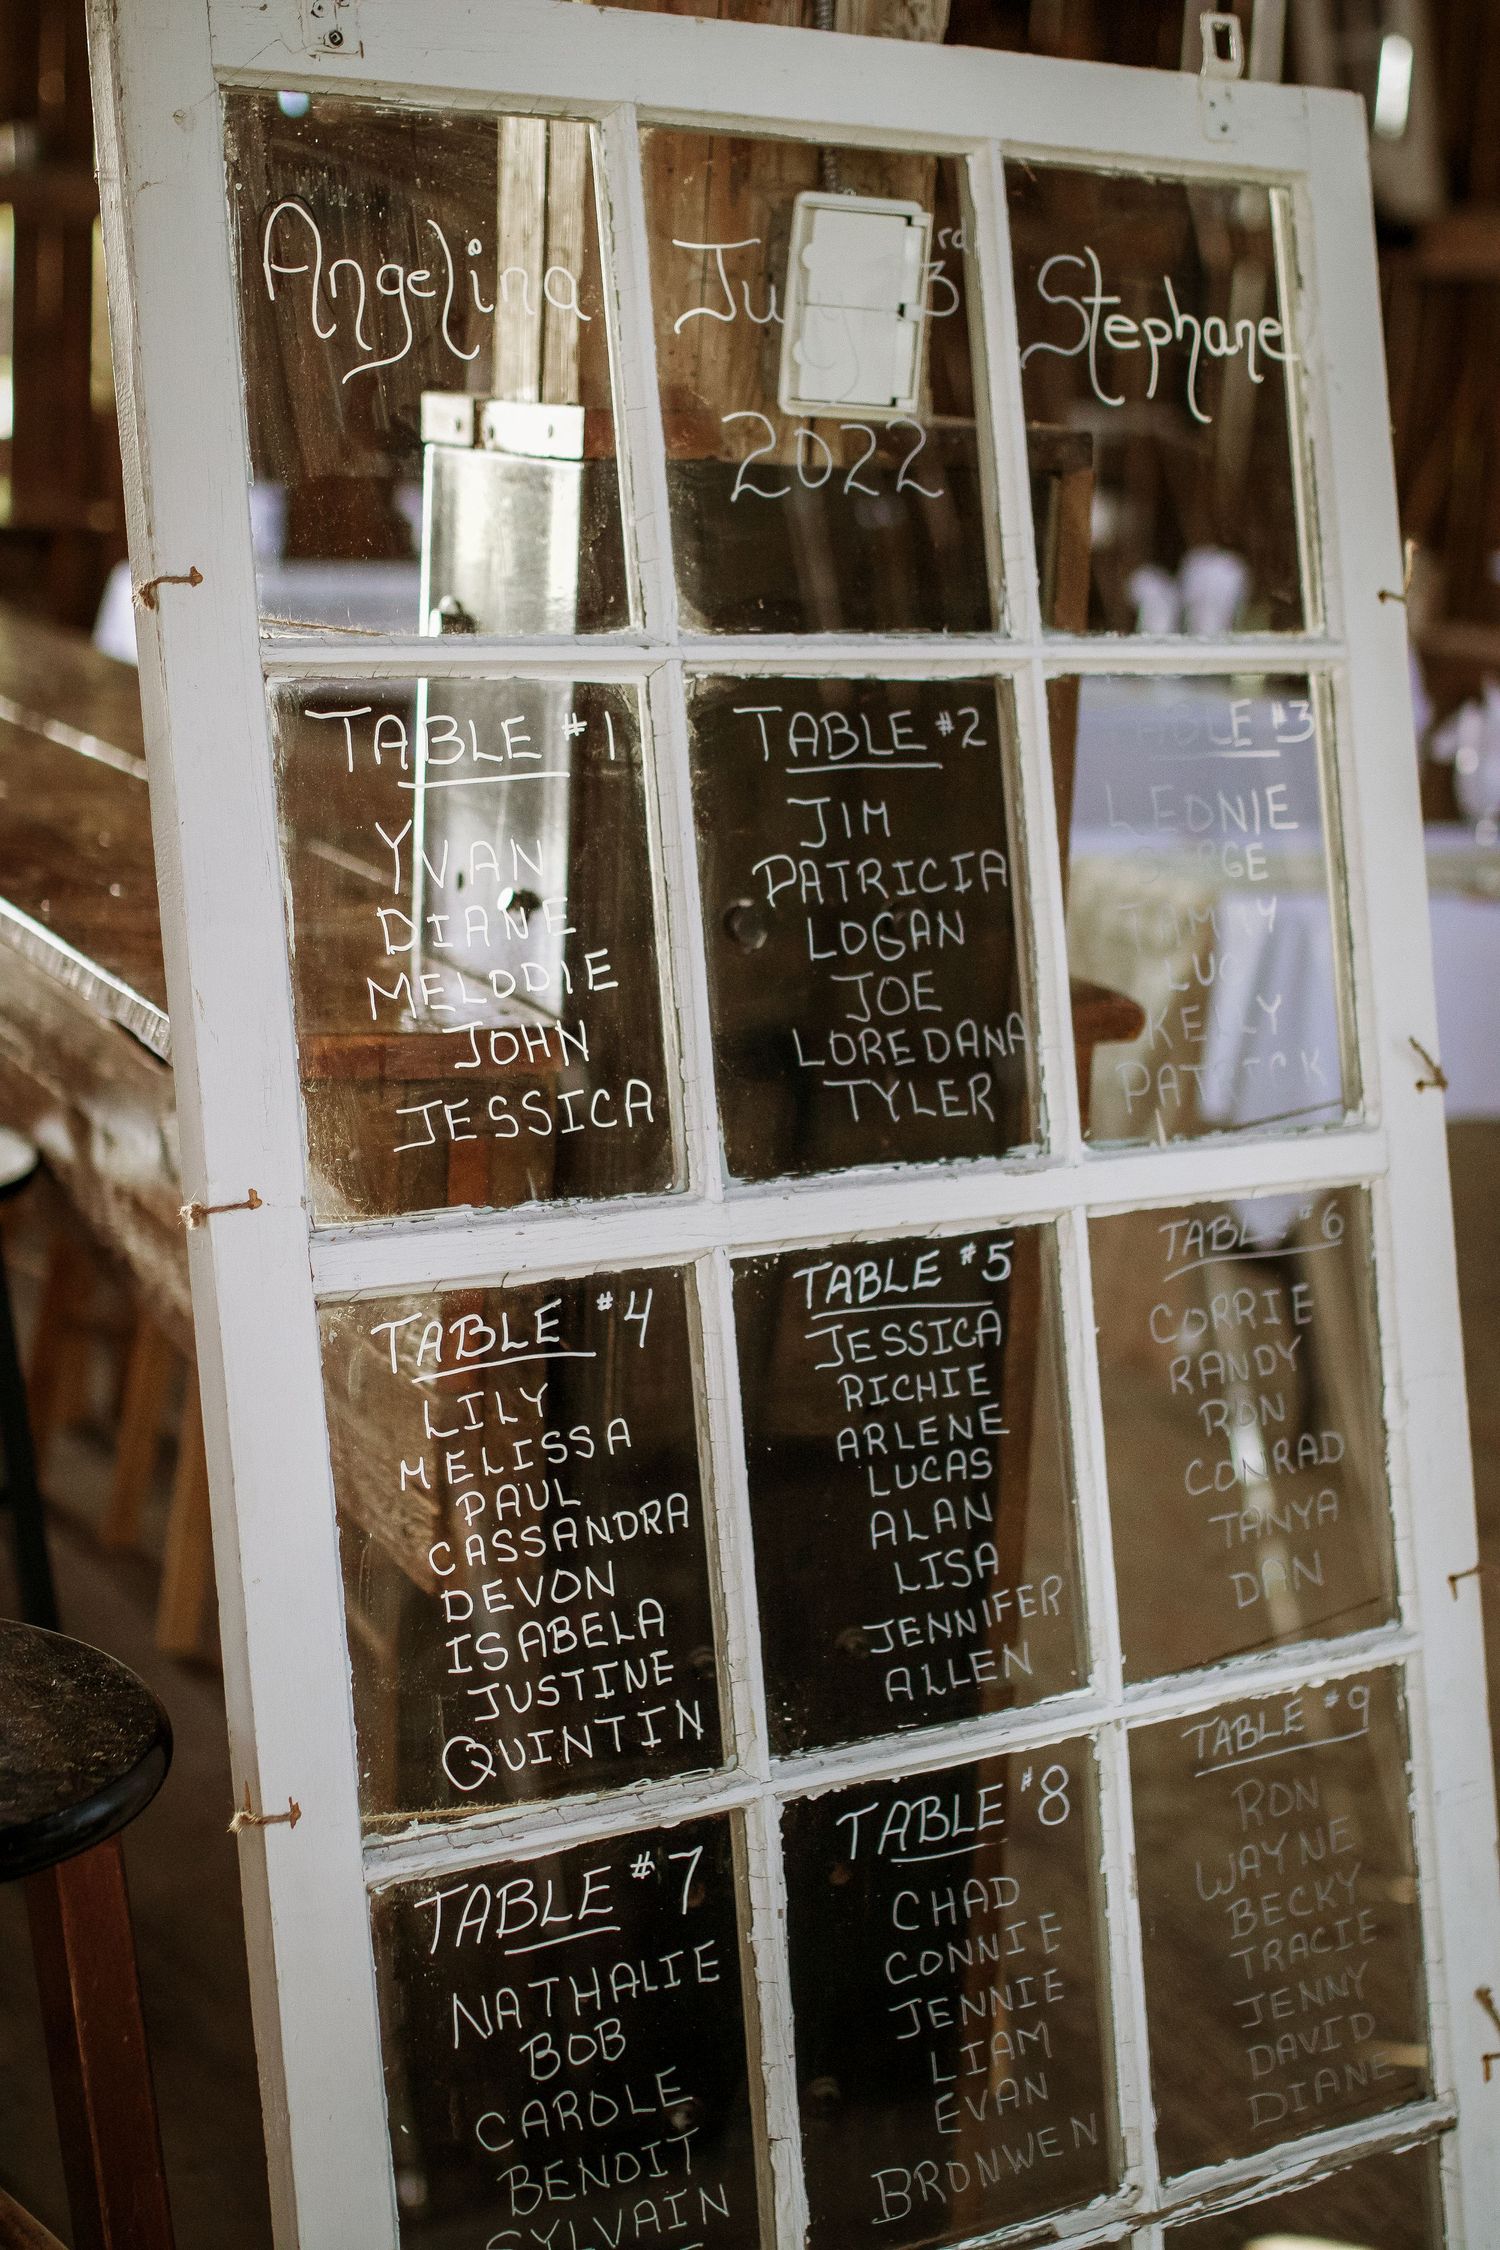 Angelina
3rd
2022
Stephane
TABLE #1
YVAN
DIANE
MELODIE
JOHN
JESSICA
TABLE #2
JIM
PATRICIA
LOGAN
JOE
LOREDANA
TYLER
TABLE #3
LEONIE
TAMMY
KELLY
PATRICK
TABLE #4
LILY
MELISSA
PAUL
CASSANDRA
DEVON
ISABELA
JUSTINE
QUINTIN
TABLE #5
JESSICA
RICHIE
ARLENE
LUCAS
ALAN
LISA
JENNIFER
ALLEN
TABLE #6
CORRIE
RANDY
RON
CONRAD
TANYA
DAN
TABLE #7
NATHALIE
BOB
CAROLE
BENOIT
SYLVAIN
TABLE #8
CHAD
CONNIE
JENNIE
LIAM
EVAN
BRONWEN
TABLE #9
RON
WAYNE
BECKY
TRACIE
JENNY
DAVID
DIANE